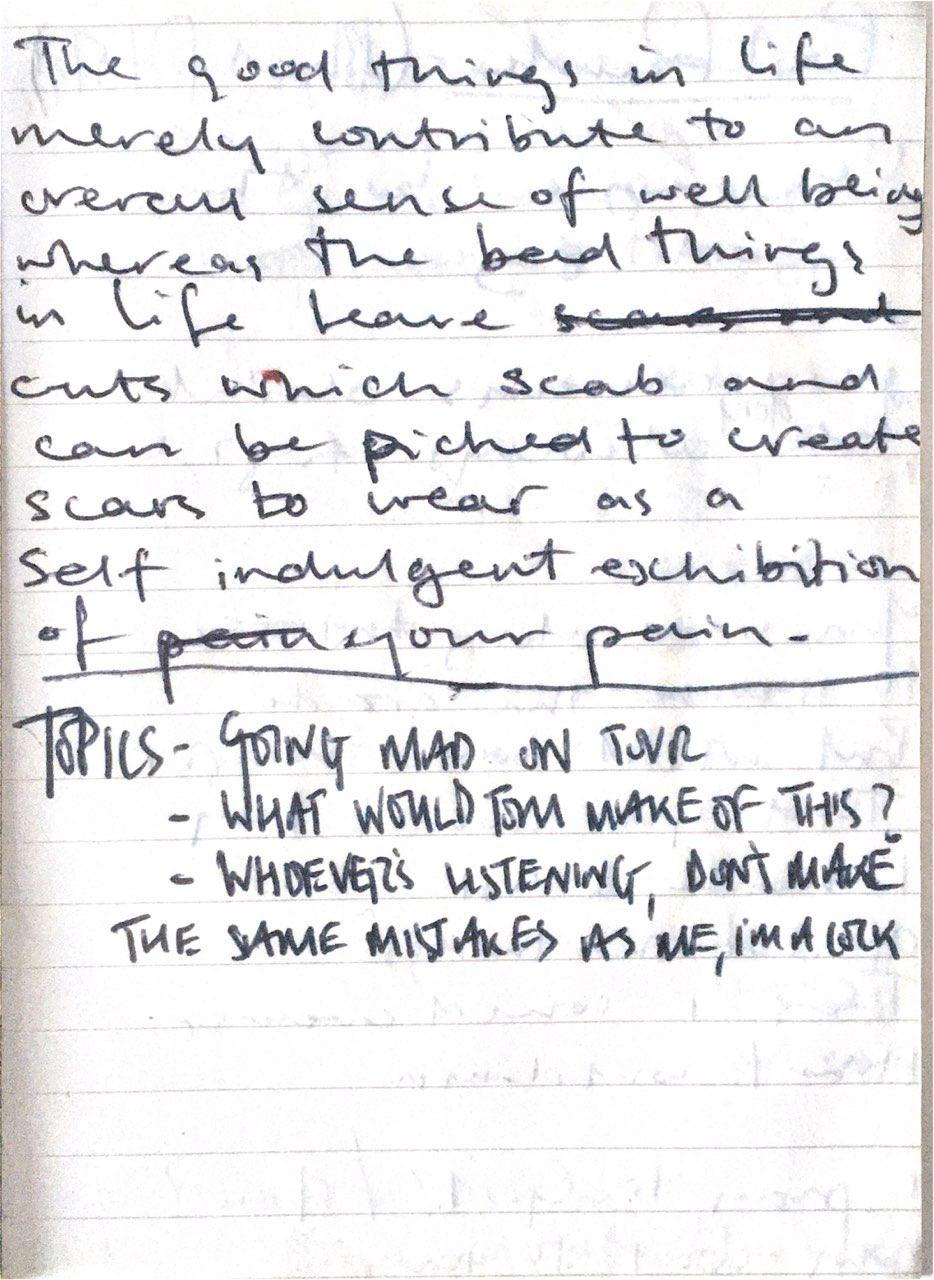 The good things in life
merely contribute to an
overall sense of well being
whereas the bad things
in life leave scars and
cuts which scab and
can be picked to create
scars to wear as a
Self indulgent exhibition
of pain your pain.
TOPICS - GOING MAD ON TOUR
- WHAT WOULD TOM MAKE OF THIS?
- WHOEVER'S LISTENING, DON'T MAKE
THE SAME MISTAKES AS ME, I'M A COCK